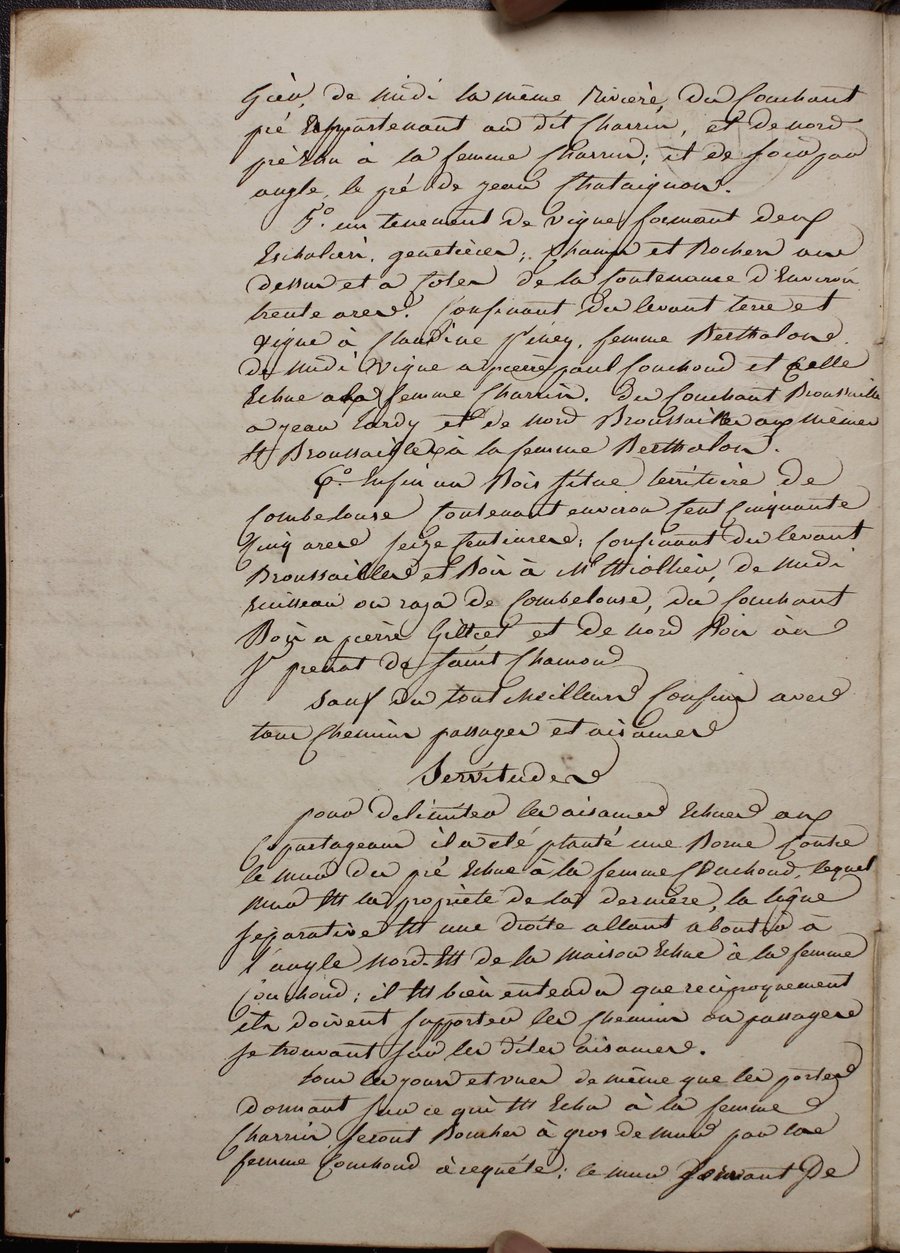 Gier, de midi la même Rivière, du Couchant
pré appartenant au dit Charrin, et de nord
pré Echu à la femme Charrin; et de soir par
angle le pré de jean Chataignon.
5.° un tenement de vigne formant deux
Eschaliers, genetières, et Rochers au
dessus et a Coter de la Contenance d'Environ
trente ares. Confinant du levant terre et
vigne à Claudine femme Berthalon.
de midi vigne a pierre paul Couchoud et Celle
Echue a la femme Charrin. du Couchant Broussaille
a jean Tardy et de nord Broussailles aux mêmes
et Broussailles à la femme Berthalon.
6.° Enfin un Bois situé territoire de
Combelouse Contenant environ Cent Cinquante
Cinq ares seize Centiares; Confinant du levant
Broussailles et Bois à Mr Thiollier, de midi
ruisseau ou raza de Combelouse, du Couchant
Bois a pierre et de nord Bois au
Sr prenat de Saint Chamond
Sauf du tout meilleurs Confins avec
tous Chemins passages et aisances
Servitudes
pour délimiter les aisances Echues aux
Copartageans il a été planté une Borne Contre
le mur du pré Echue à la femme Couchoud, lequel
mur Est la propriété de la dernière, la ligne
separative Est une droite allant aboutir à
l'angle Nord-Est de la maison Echue à la femme
Couchoud; il Est bien entendu que reciproquement
ils doivent supporter les Chemins ou passages
se trouvant sur les dites aisances.
tous les jours et vues de même que les portes
donnant sur ce qui Est Echu à la femme
Charrin seront Boucher à gros de mur par la
femme Couchoud à requête; le mur de